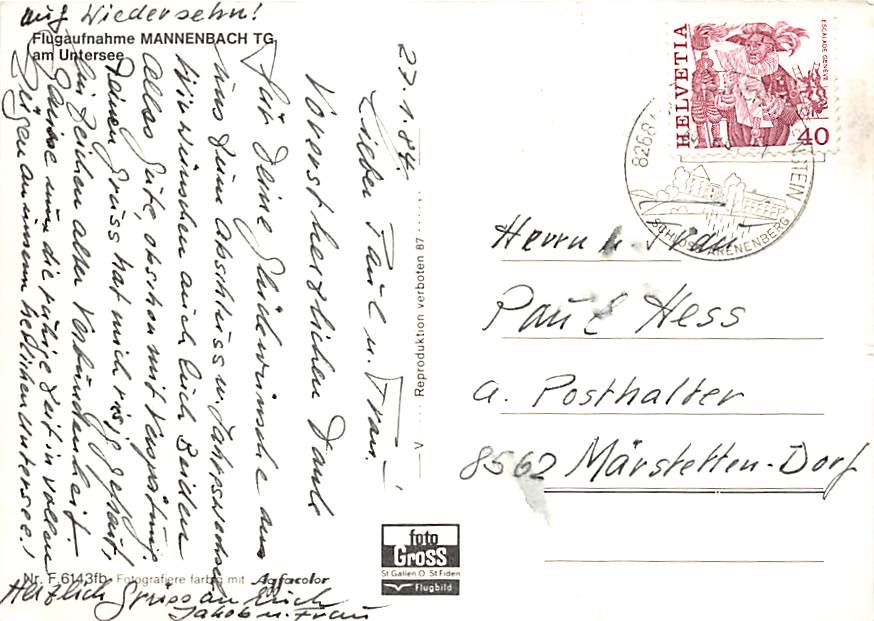 auf Wiedersehn!
Flugaufnahme MANNENBACH TG
am Untersee
27.1.84.
Lieber Paul u. Frau.
Vorerst herzlichen Dank
für Deine Glückwünsche aus
zum Abschluss u. Jahreswechsel
Wir wünschen auch Euch Beiden
alles Gute, obschon mit Verspätung
Deinen Gruss hat mich riesig gefreut,
ein Zeichen alter Verbundenheit.
Geniesse nun die ruhige Zeit in vollen
Zügen an unserem herrlichen Untersee!
Herzlich Grüss an Euch
Jakob u. Frau
Nr. F 6143fb Fotografiere farbig mit Agfacolor
V Reproduktion verboten 87
foto
Gross
St. Gallen O. St. Fiden
Flugbild
HELVETIA
ESCALADE GENÈVE
40
8268
STEIN
SCHLOSS ARENENBERG
Herrn u. Frau
Paul Hess
a. Posthalter
8562 Märstetten-Dorf